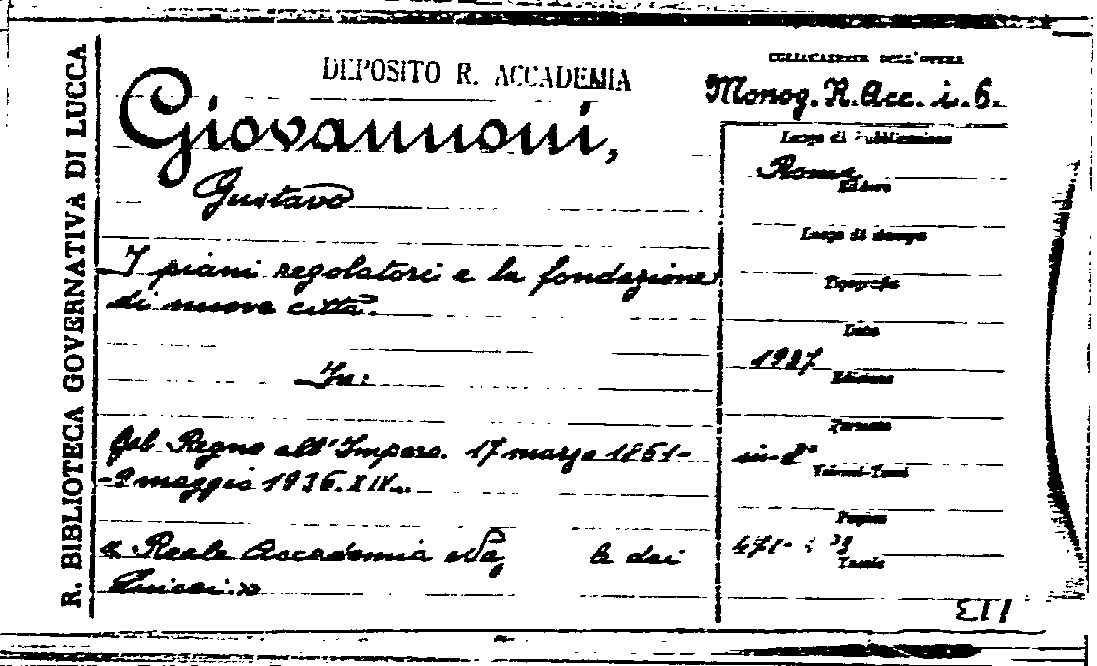 R. BIBLIOTECA GOVERNATIVA DI LUCCA
DEPOSITO R. ACCADEMIA
COLLOCAZIONE DELL'OPERA
Monog. R. Acc. i. 6.
Giovannoni,
Gustavo
I piani regolatori e la fondazione
di nuove città.
In:
Dal Regno all'Impero. 17 marzo 1861-
-9 maggio 1936.XIV..
« Reale Accademia Naz le dei
Lincei.»
Luogo di Pubblicazione
Roma
Editore
Luogo di stampa
Tipografia
Data
1937
Edizione
Formato
in-8°
Volumi-Tomi
Pagine
471-
Tavole